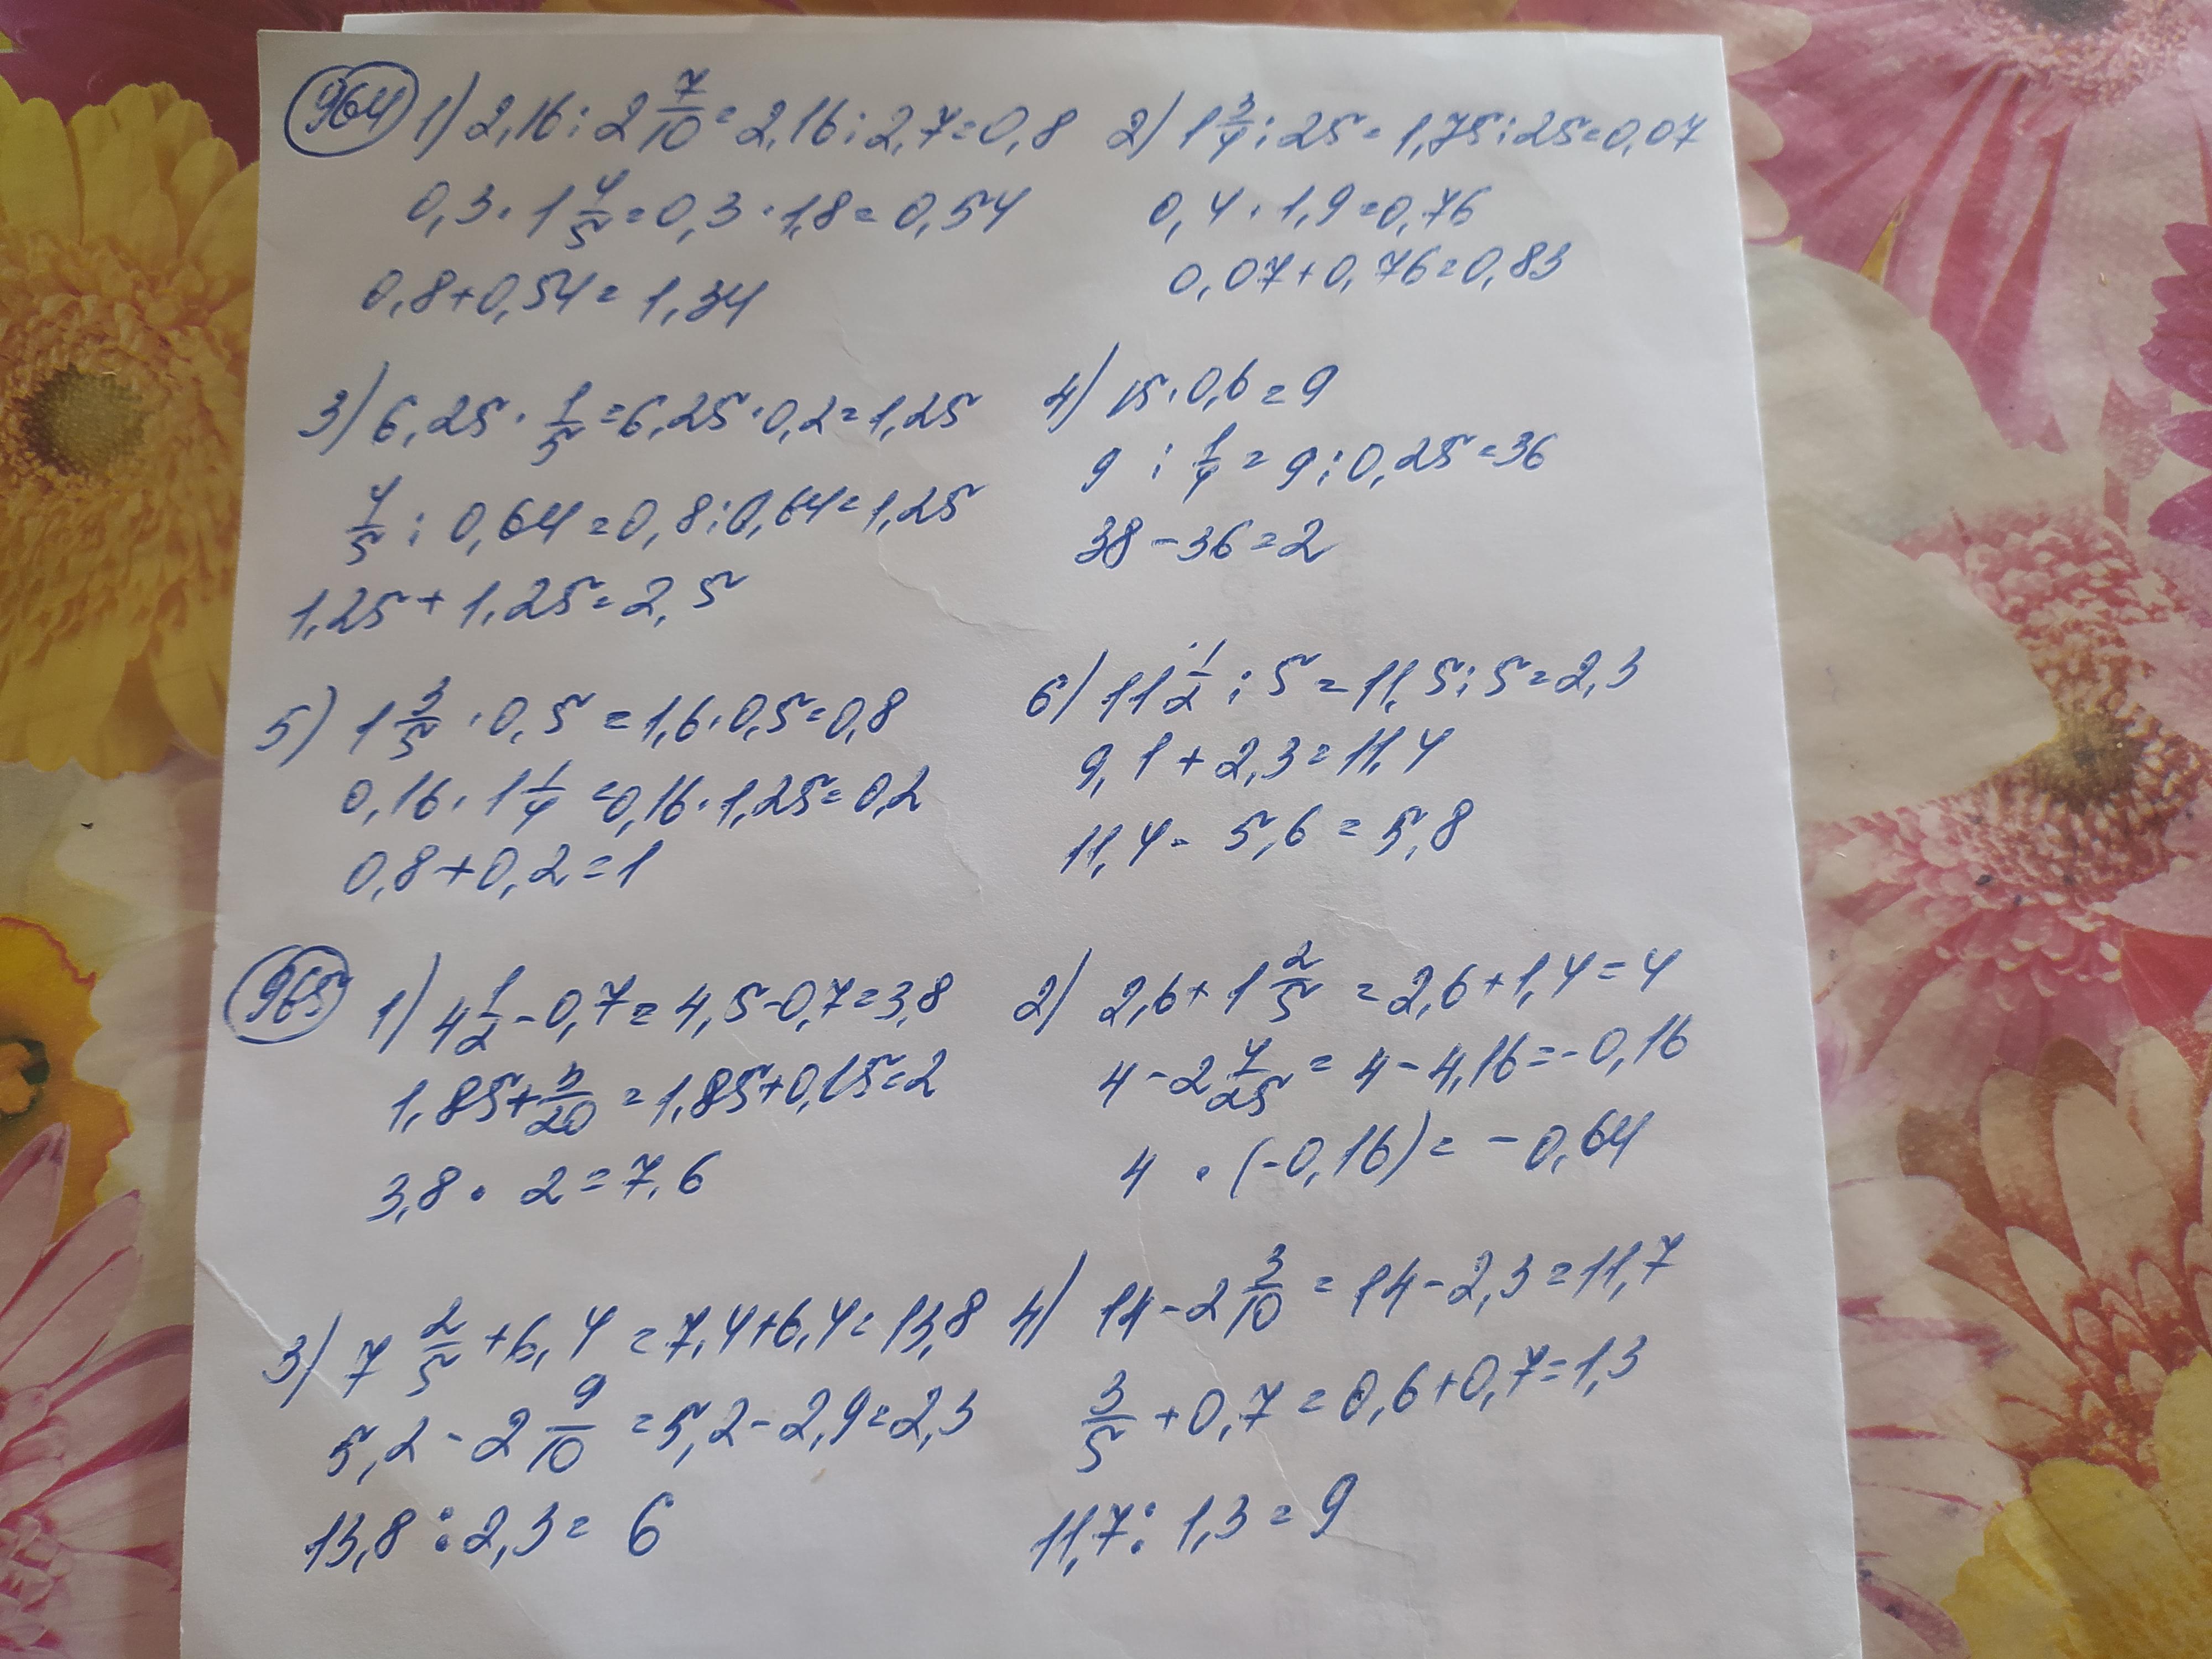 964 1) 2,16 : 2 7/10 = 2,16 : 2,7 = 0,8
0,3 · 1 4/5 = 0,3 · 1,8 = 0,54
0,8 + 0,54 = 1,34
2) 1 3/4 : 25 = 1,75 : 25 = 0,07
0,4 · 1,9 = 0,76
0,07 + 0,76 = 0,83
3) 6,25 · 1/5 = 6,25 · 0,2 = 1,25
4/5 : 0,64 = 0,8 : 0,64 = 1,25
1,25 + 1,25 = 2,5
4) 15 · 0,6 = 9
9 : 1/4 = 9 : 0,25 = 36
38 - 36 = 2
5) 1 3/5 · 0,5 = 1,6 · 0,5 = 0,8
0,16 · 1 1/4 = 0,16 · 1,25 = 0,2
0,8 + 0,2 = 1
6) 11 1/2 : 5 = 11,5 : 5 = 2,3
9,1 + 2,3 = 11,4
11,4 - 5,6 = 5,8
965 1) 4 1/2 - 0,7 = 4,5 - 0,7 = 3,8
1,85 + 3/20 = 1,85 + 0,15 = 2
3,8 · 2 = 7,6
2) 2,6 + 1 2/5 = 2,6 + 1,4 = 4
4 - 2 4/25 = 4 - 4,16 = -0,16
4 · (-0,16) = -0,64
3) 7 2/5 + 6,4 = 7,4 + 6,4 = 13,8
5,2 - 2 9/10 = 5,2 - 2,9 = 2,3
13,8 : 2,3 = 6
4) 14 - 2 3/10 = 14 - 2,3 = 11,7
3/5 + 0,7 = 0,6 + 0,7 = 1,3
11,7 : 1,3 = 9